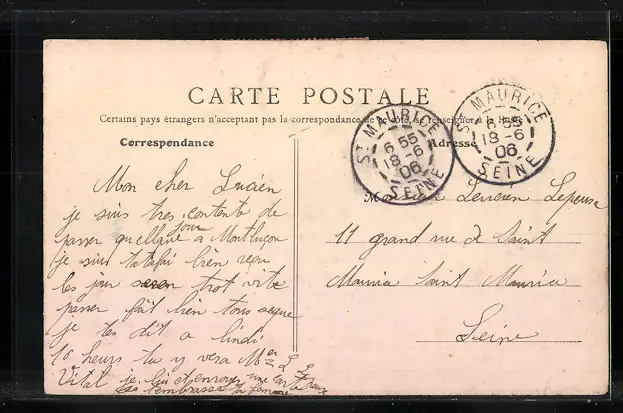 CARTE POSTALE
Certains pays étrangers n'acceptent pas la correspondance de ce côté, se renseigner à la
Correspondance
Adresse
ST MAURICE
6 55
18 - 6
06
SEINE
ST MAURICE
6 55
18 - 6
06
SEINE
Mon cher Lucien
je suis tres contente de
jour
passer quellque a Montluçon
je suis bien reçu
les jour trot vite
passer fait bien tous seque
je tes dit a lindi
10 heurs tu y vera
Vital je et envoyer une carte
11 grand rue de Saint
Maurice Saint Maurice
Seine